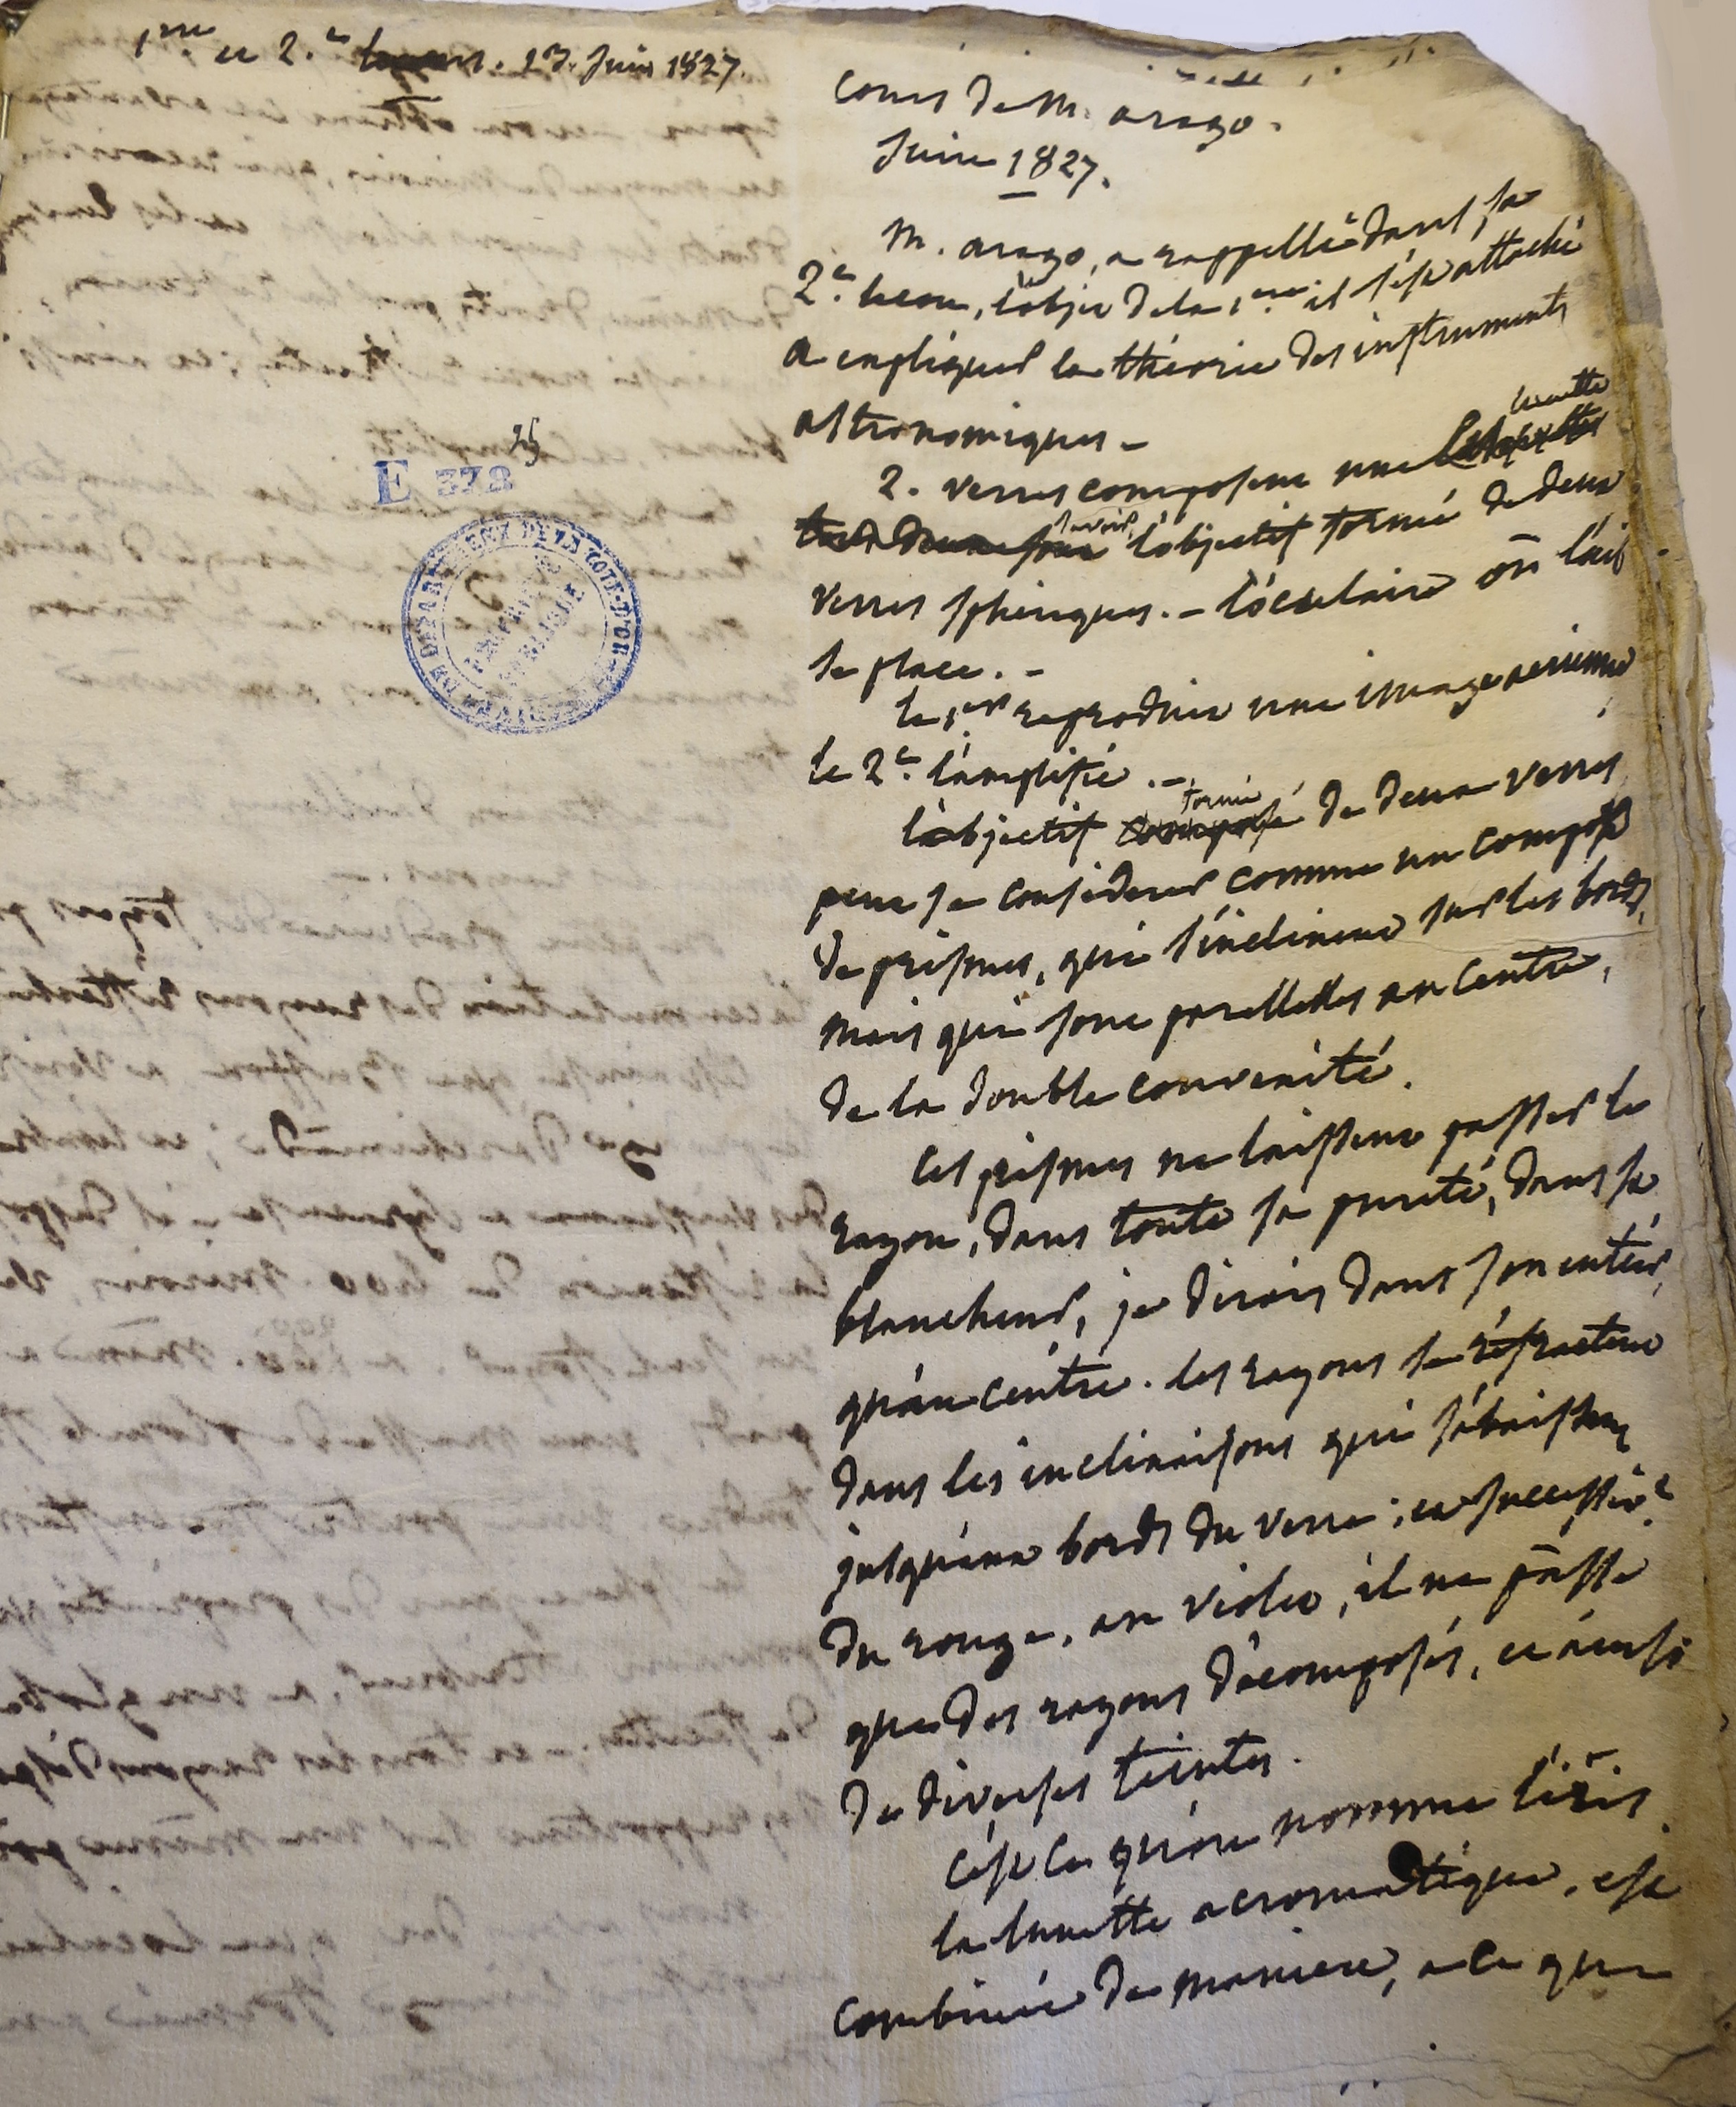 1ere et 2.e lecons. 13. Juin 1827.
25
E 378
ARCHIVES DU DEPARTEMENT DE LA COTE-D'OR
PROPRIÉTÉ
PUBLIQUE
Cours de M. arago.
Juin 1827.
M. arago, a rappellé dans sa
2.e lecon, l'objet de la 1ere. il s'est attaché
a expliquer la théorie des instruments
astronomiques -
lunette
2. verres composent une
savoir l'objectif formé de deux
verres sphériques. - l'oculaire où l'œil
se place. -
le 1.er reproduit une image aerienne
le 2.e l'amplifie. -
formé
l'objectif composé de deux verres
peut se considerer comme un composé
de prismes, qui s'inclinent sur les bords,
mais qui sont parallelles au centre,
de la double convexité.
Ces prismes ne laissent passer le
rayon, dans toute sa pureté, dans sa
blancheur, je dirais dans son entier,
qu'au centre. les rayons se réfractent
dans les inclinaisons qui s'abaissent
jusqu'aux bords du verre; et successiv.t
du rouge, au violet, il ne passe
que des rayons décomposés, et ainsi
de diverses teintes.
c'est ce qu'on nomme l'iris.
la lunette acromatique, est
combinée de maniere, a ce que